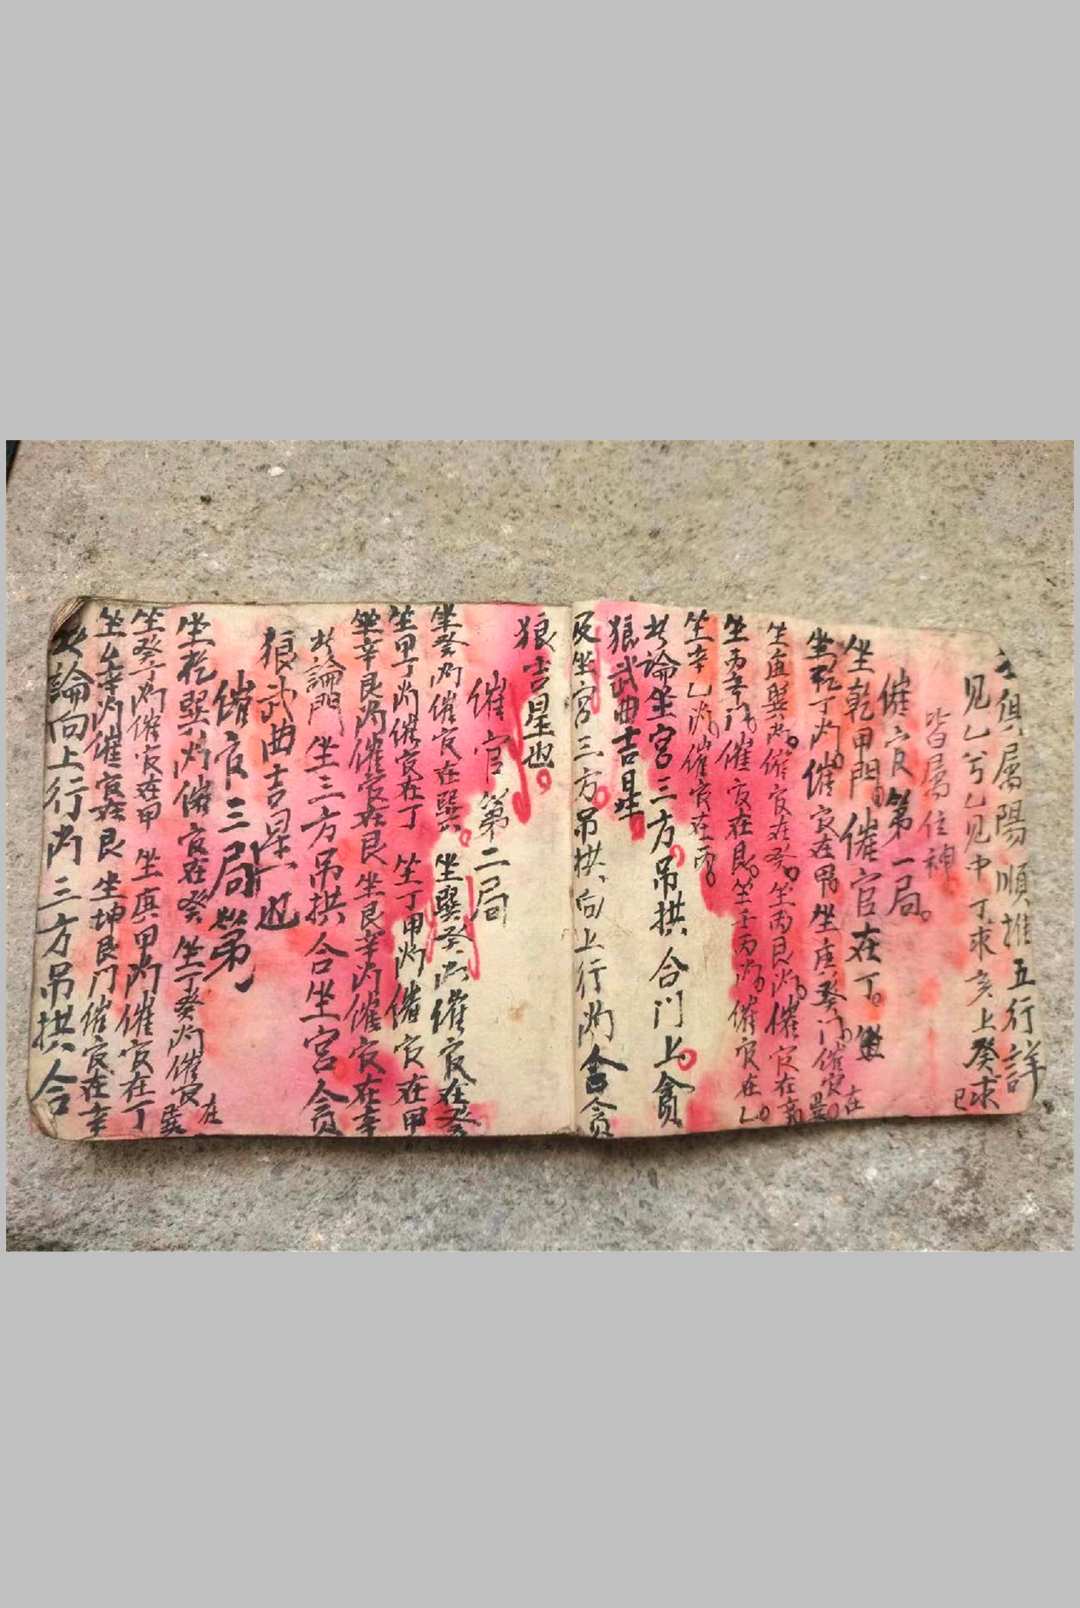 俱属陽順推五行詳
见乙兮乙见中丁求亥上癸求巳
皆属住神
催官第一局
坐乾甲門催官在丁坐
坐乾丁门催官在甲坐庚癸门催官在
坐庚巽门催官在癸坐丙艮门催官在
坐丙辛门催官在艮坐壬丙门催官在乙
坐辛乙门催官在丙
论坐宫三方吊拱合门上貪
狼武曲吉星
及坐宫三方吊拱向上行门合貪
狼吉星也
催官第二局
坐癸门催官在巽坐巽癸门催官在癸
坐甲丁门催官在丁坐丁甲门催官在甲
坐辛艮门催官在艮坐艮辛门催官在辛
论門坐三方吊拱合坐宫貪
狼武曲吉星也
催官三局第
坐乾巽门催官在癸坐丁癸门催官在
坐癸丁门催官在甲坐庚甲门催官在丁
坐辛门催官在艮坐坤艮门催官在辛
論向上行门三方吊拱合